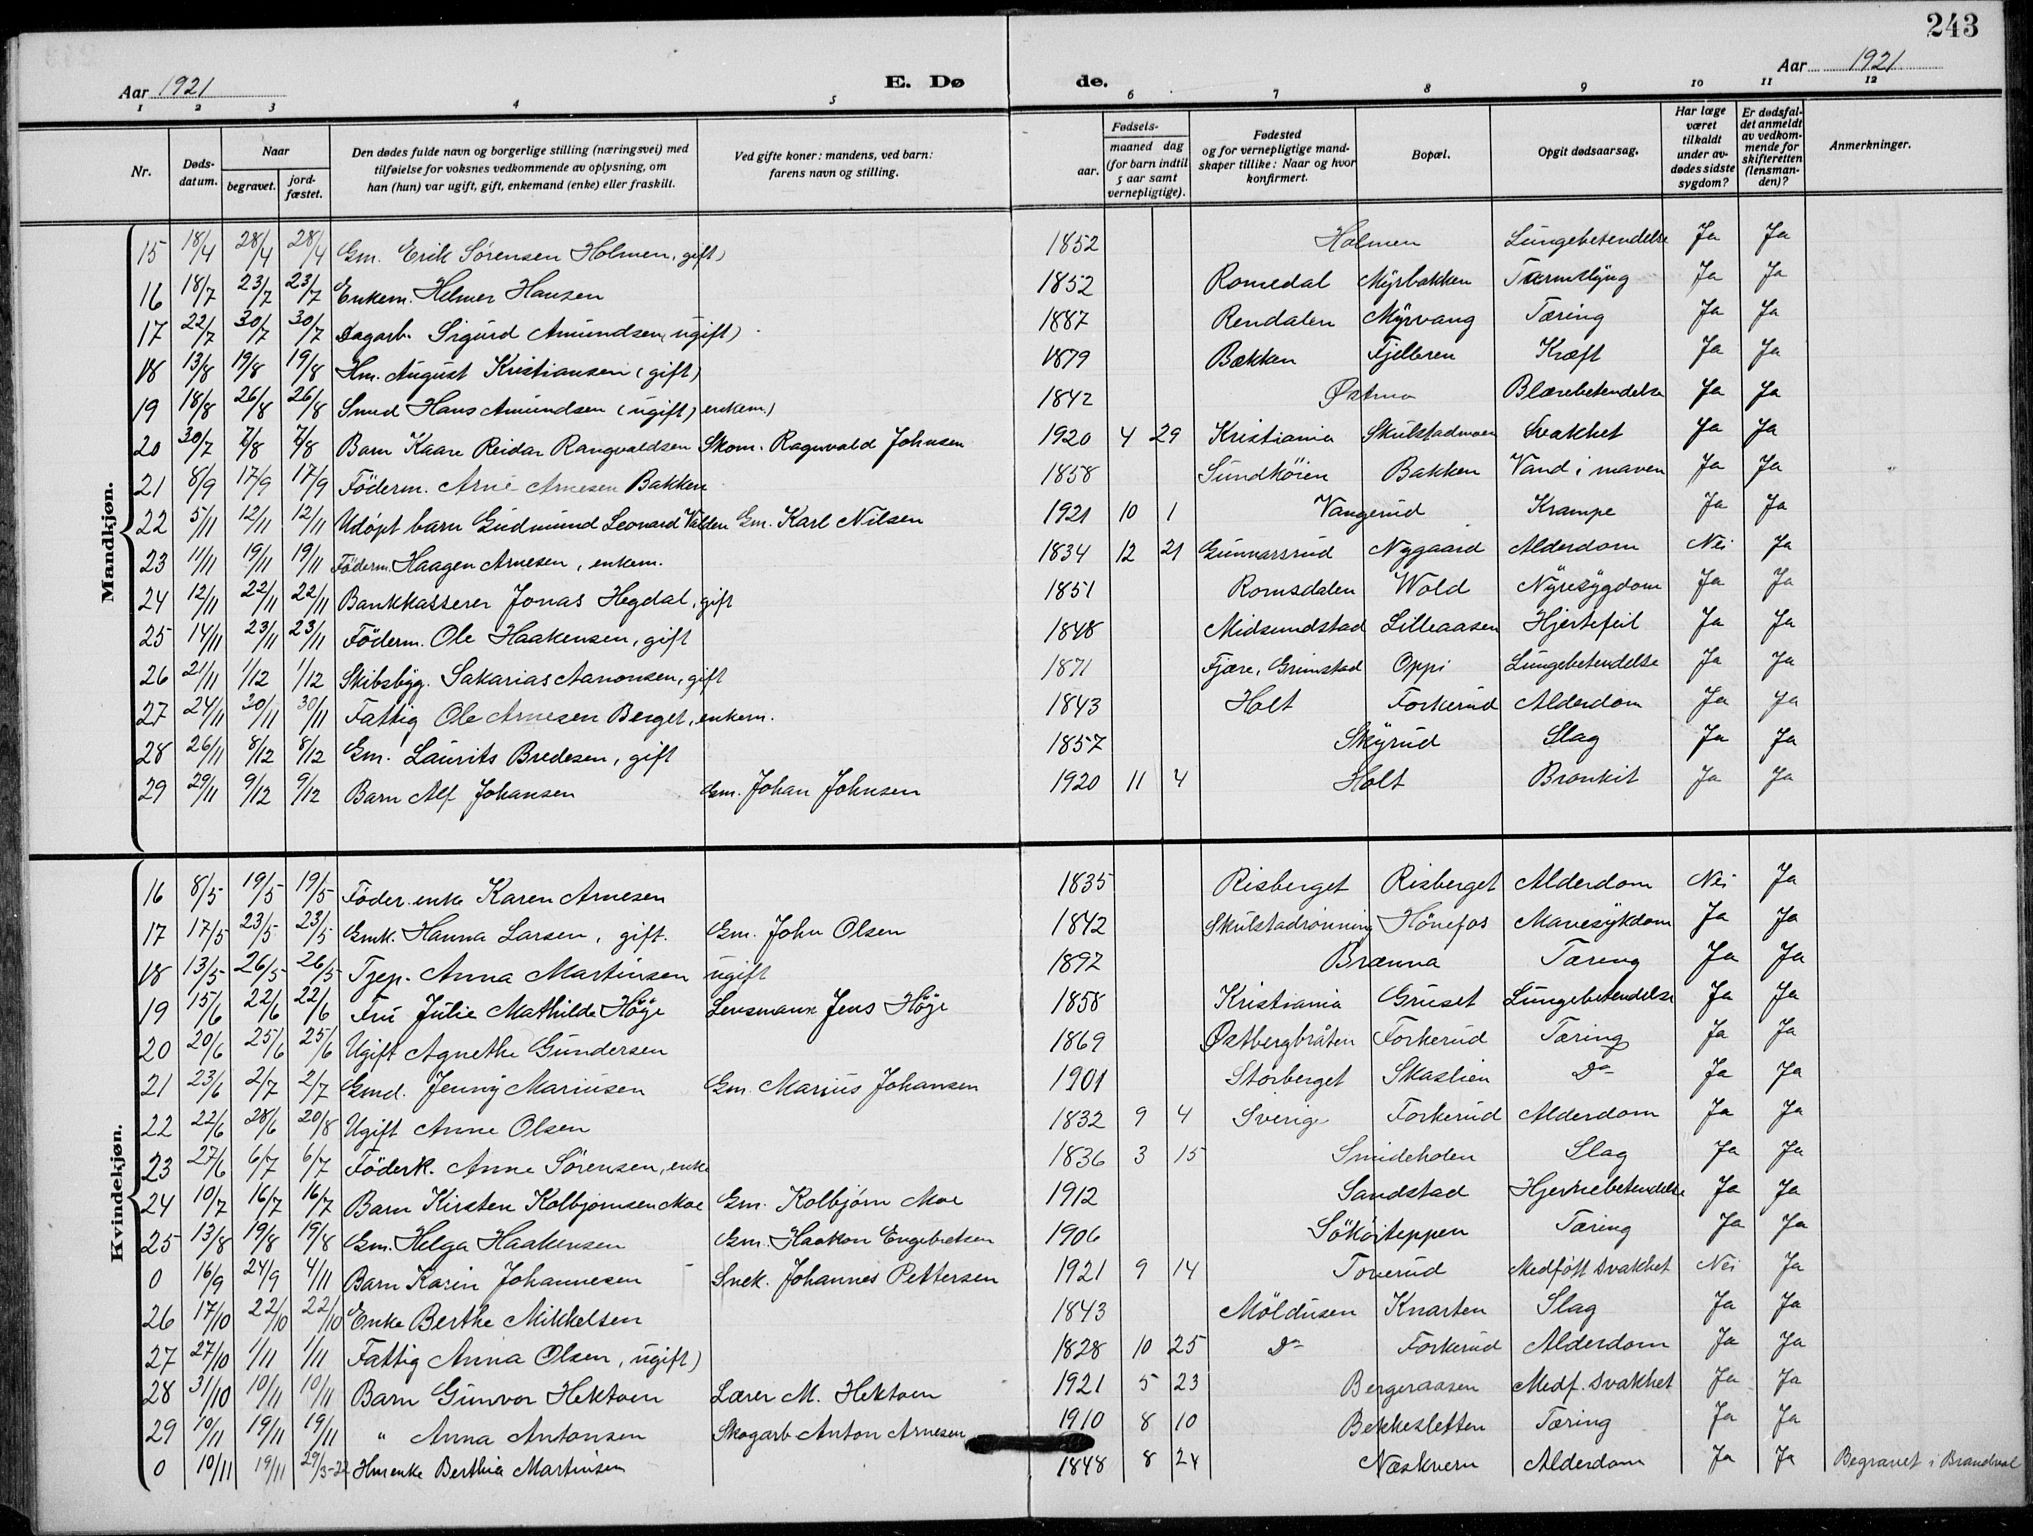 243
Aar 1921 E. Dø de. Aar 1921
1 2 3 4 5 6 7 8 9 10 11 12
Nr. Døds-datum. Naar begravet. jord-fæstet. Den dødes fulde navn og borgerlige stilling (næringsvei) med tilføielse for voksnes vedkommende av oplysning, om han (hun) var ugift, gift, enkemand (enke) eller fraskilt. Ved gifte koner: mandens, ved barn: farens navn og stilling. Fødsels- aar. maaned dag (for barn indtil 5 aar samt vernepligtige). Fødested og for vernepligtige mandskaper tillike: Naar og hvor konfirmert. Bopæl. Opgit dødsaarsag. Har læge været tilkaldt under avdødes sidste sygdom? Er dødsfaldet anmeldt av vedkommende for skifteretten (lensmanden)? Anmerkninger.
Mandkjøn.
15 18/4 28/4 28/4 Gm. Erik Sørensen Holmen, gift) 1852 Holmen Lungebetendelse Ja Ja
16 18/7 23/7 23/7 Enkem. Helmer Hansen 1852 Romedal Myrbakken Ja Ja
17 22/7 30/7 30/7 Dagarb. Sigurd Amundsen (ugift) 1887 Rendalen Myrvang Tæring Ja Ja
18 13/8 19/8 19/8 Hm. August Kristiansen (gift) 1879 Bækken Fjellbren Kræft Ja Ja
19 18/8 26/8 26/8 Smed Hans Amundsen (ugift) enkem.) 1842 Østmo Blærebetendelse Ja Ja
20 30/7 7/8 7/8 Barn Kaare Reidar Rangvaldsen Skom. Ragnvald Johnsen 1920 4 29 Kristiania Skulstadmoen Svakhet Ja Ja
21 8/9 17/9 17/9 Föderm. Arne Arnesen Bakken 1858 Sundköien Bakken Vand i maven Ja Ja
22 5/11 12/11 12/11 Udöpt barn Gudmund Leonard Valden Gm. Karl Nilsen 1921 10 1 Vangerud Krampe Ja Ja
23 11/11 19/11 19/11 Föderm. Haagen Arnesen, enkem. 1834 12 21 Gunnarsrud Nygaard Alderdom Nei Ja
24 12/11 22/11 22/11 Bankkasserer Jonas Hegdal, gift 1851 Romsdalen Wold Nyresygdom Ja Ja
25 14/11 23/11 23/11 Föderm. Ole Haakensen, gift 1848 Midsundstad Lilleaasen Hjertefeil Ja Ja
26 21/11 1/12 1/12 Skibsbyg. Sakarias Aanonsen, gift 1871 Fjære, Grimstad Oppi Lungebetendelse Ja Ja
27 24/11 30/11 30/11 Fattig Ole Arnesen Berget, enkem. 1843 Holt Forkerud Alderdom Ja Ja
28 26/11 8/12 8/12 Gm. Laurits Bredesen, gift 1857 Skyrud Slag Ja Ja
29 29/11 9/12 9/12 Barn Alf Johansen Gm. Johan Johnsen 1920 11 4 Holt Bronkit Ja Ja
Kvindekjøn.
16 8/5 19/5 19/5 Föder. enke Karen Arnesen 1835 Risberget Risberget Alderdom Nei Ja
17 17/5 23/5 23/5 Gmk. Hanna Larsen, gift. Gm. John Olsen 1842 Skulstadrønning Hönefos Mavesykdom Ja Ja
18 13/5 26/5 26/5 Tjep. Anna Martinsen ugift 1892 Brænna Tæring Ja Ja
19 15/6 22/6 22/6 Fru Julie Mathilde Höje Lensmann Jens Höje 1858 Kristiania Gruset Lungebetendelse Ja Ja
20 20/6 25/6 25/6 Ugift Agnethe Gundersen 1869 Østbergbråten Forkerud Tæring Ja Ja
21 23/6 2/7 2/7 Gmd. Jenny Mariusen Gm. Marius Johansen 1901 Storberget Skaslien Do Ja Ja
22 22/6 28/6 20/8 Ugift Anne Olsen 1832 9 4 Sverige Forkerud Alderdom Ja Ja
23 27/6 6/7 6/7 Föderk. Anne Sörensen, enke 1836 3 15 Smideholen Slag Ja Ja
24 10/7 16/7 16/7 Barn Kirsten Kolbjørnsen Moe Gm. Kolbjørn Moe 1912 Sandstad Hjernebetendelse Ja Ja
25 13/8 19/8 19/8 Gm. Helga Haakensen Gm. Haakon Engebretsen 1906 Tæring Ja Ja
0 16/9 24/9 4/11 Barn Karin Johannesen Snek. Johannes Pettersen 1921 9 14 Toverud Medfött svakhet Nei Ja
26 17/10 22/10 22/10 Enke Berthe Mikkelsen 1843 Möldusen Knarten Slag Ja Ja
27 27/10 1/11 1/11 Fattig Anna Olsen, ugift) 1828 10 25 Do Forkerud Alderdom Ja Ja
28 31/10 10/11 10/11 Barn Gunvor Hektoen Lærer M. Hektoen 1921 5 23 Bergeraasen Medf. svakhet Ja Ja
29 10/11 19/11 19/11 " Anna Antonsen Skogarb Anton Arnesen 1910 8 10 Bekkesletten Tæring Ja Ja
0 10/11 19/11 29/3-22 Hmenke Berthia Martinsen 1848 8 24 Næskvern Alderdom Ja Ja Begravet i Brandval